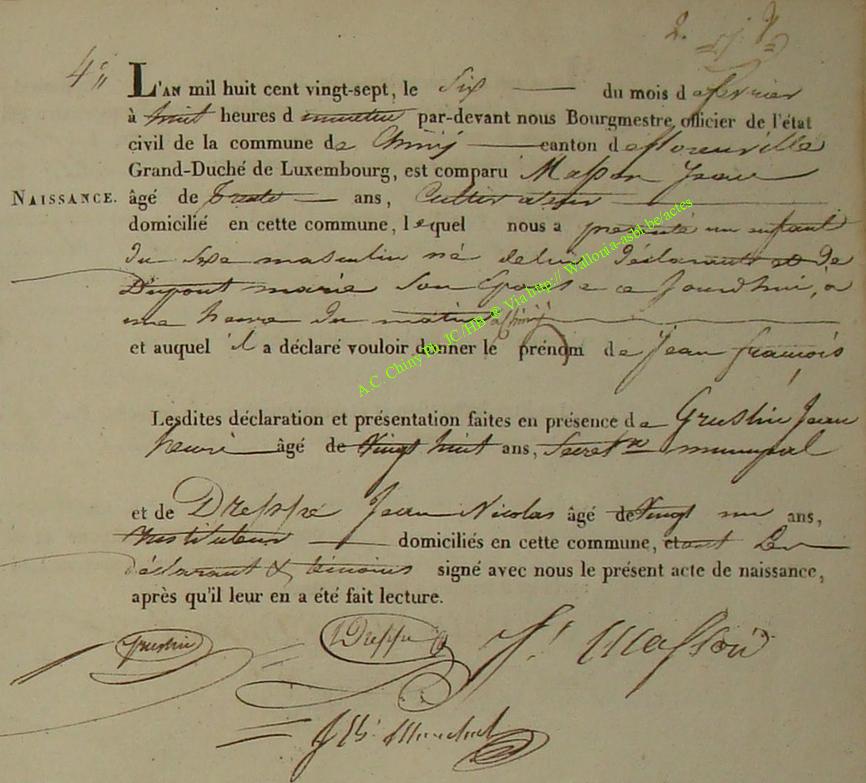 2.
4e
L'AN mil huit cent vingt-sept, le Six du mois de fevrier
à huit heures d par-devant nous Bourgmestre, officier de l'état
civil de la commune de Chiny canton de florenville
Grand-Duché de Luxembourg, est comparu Masson Jean
NAISSANCE. âgé de Trente ans, Cultivateur
domicilié en cette commune, lequel nous a presenté un enfant
du Sexe masculin né de lui déclarant et de
Dupont marie Son Epouse ce Jourd'hui, à
une heure du matin à Chiny
et auquel il a déclaré vouloir donner le prénom de Jean francois
Lesdites déclaration et présentation faites en présence de Grustin Jean
henri âgé de Vingt huit ans, Secret.re municipal
et de Dresse Jean Nicolas âgé de Vingt un ans,
Instituteur domiciliés en cette commune, et ont Les
déclarant & témoins signé avec nous le présent acte de naissance,
après qu'il leur en a été fait lecture.
Grustin Dresse J. Masson
A.C. Chiny Ph. JC/HB @ Via http:// Wallonia-asbl.be/actes